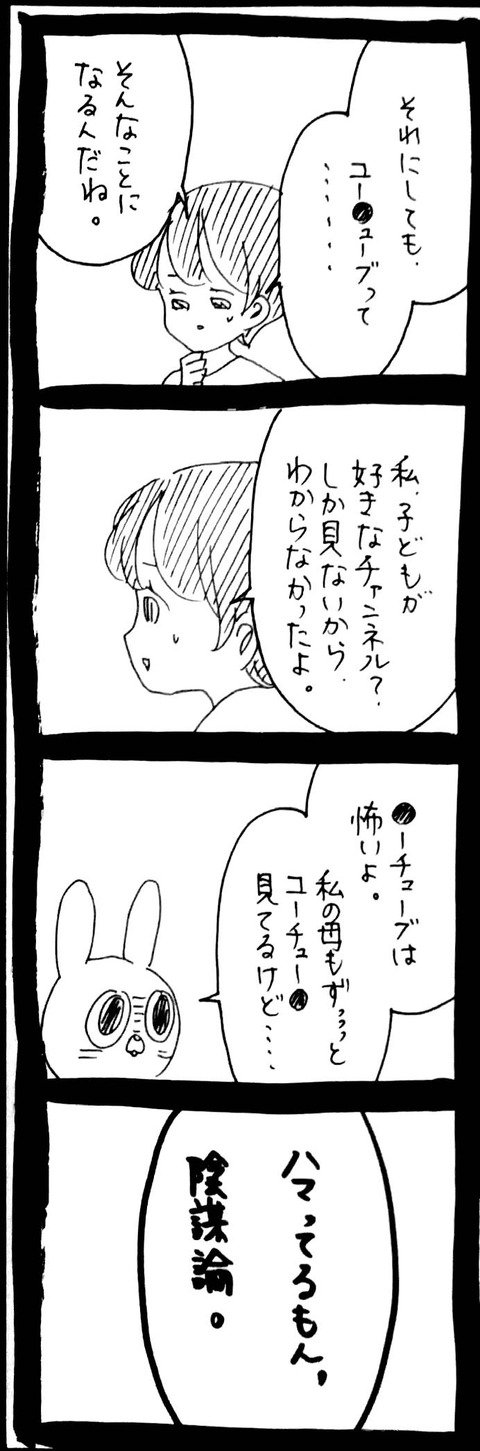 それにしても、
ユー●ューブって
・・・・・・・
そんなことに
なるんだね。
私、子どもが
好きなチャンネル?
しか見ないから、
わからなかったよ。
●ーチューブは
怖いよ。
私の母もずぅぅっと
ユーチュー●
見てるけど‥‥
ハマってるもん,
陰謀論。